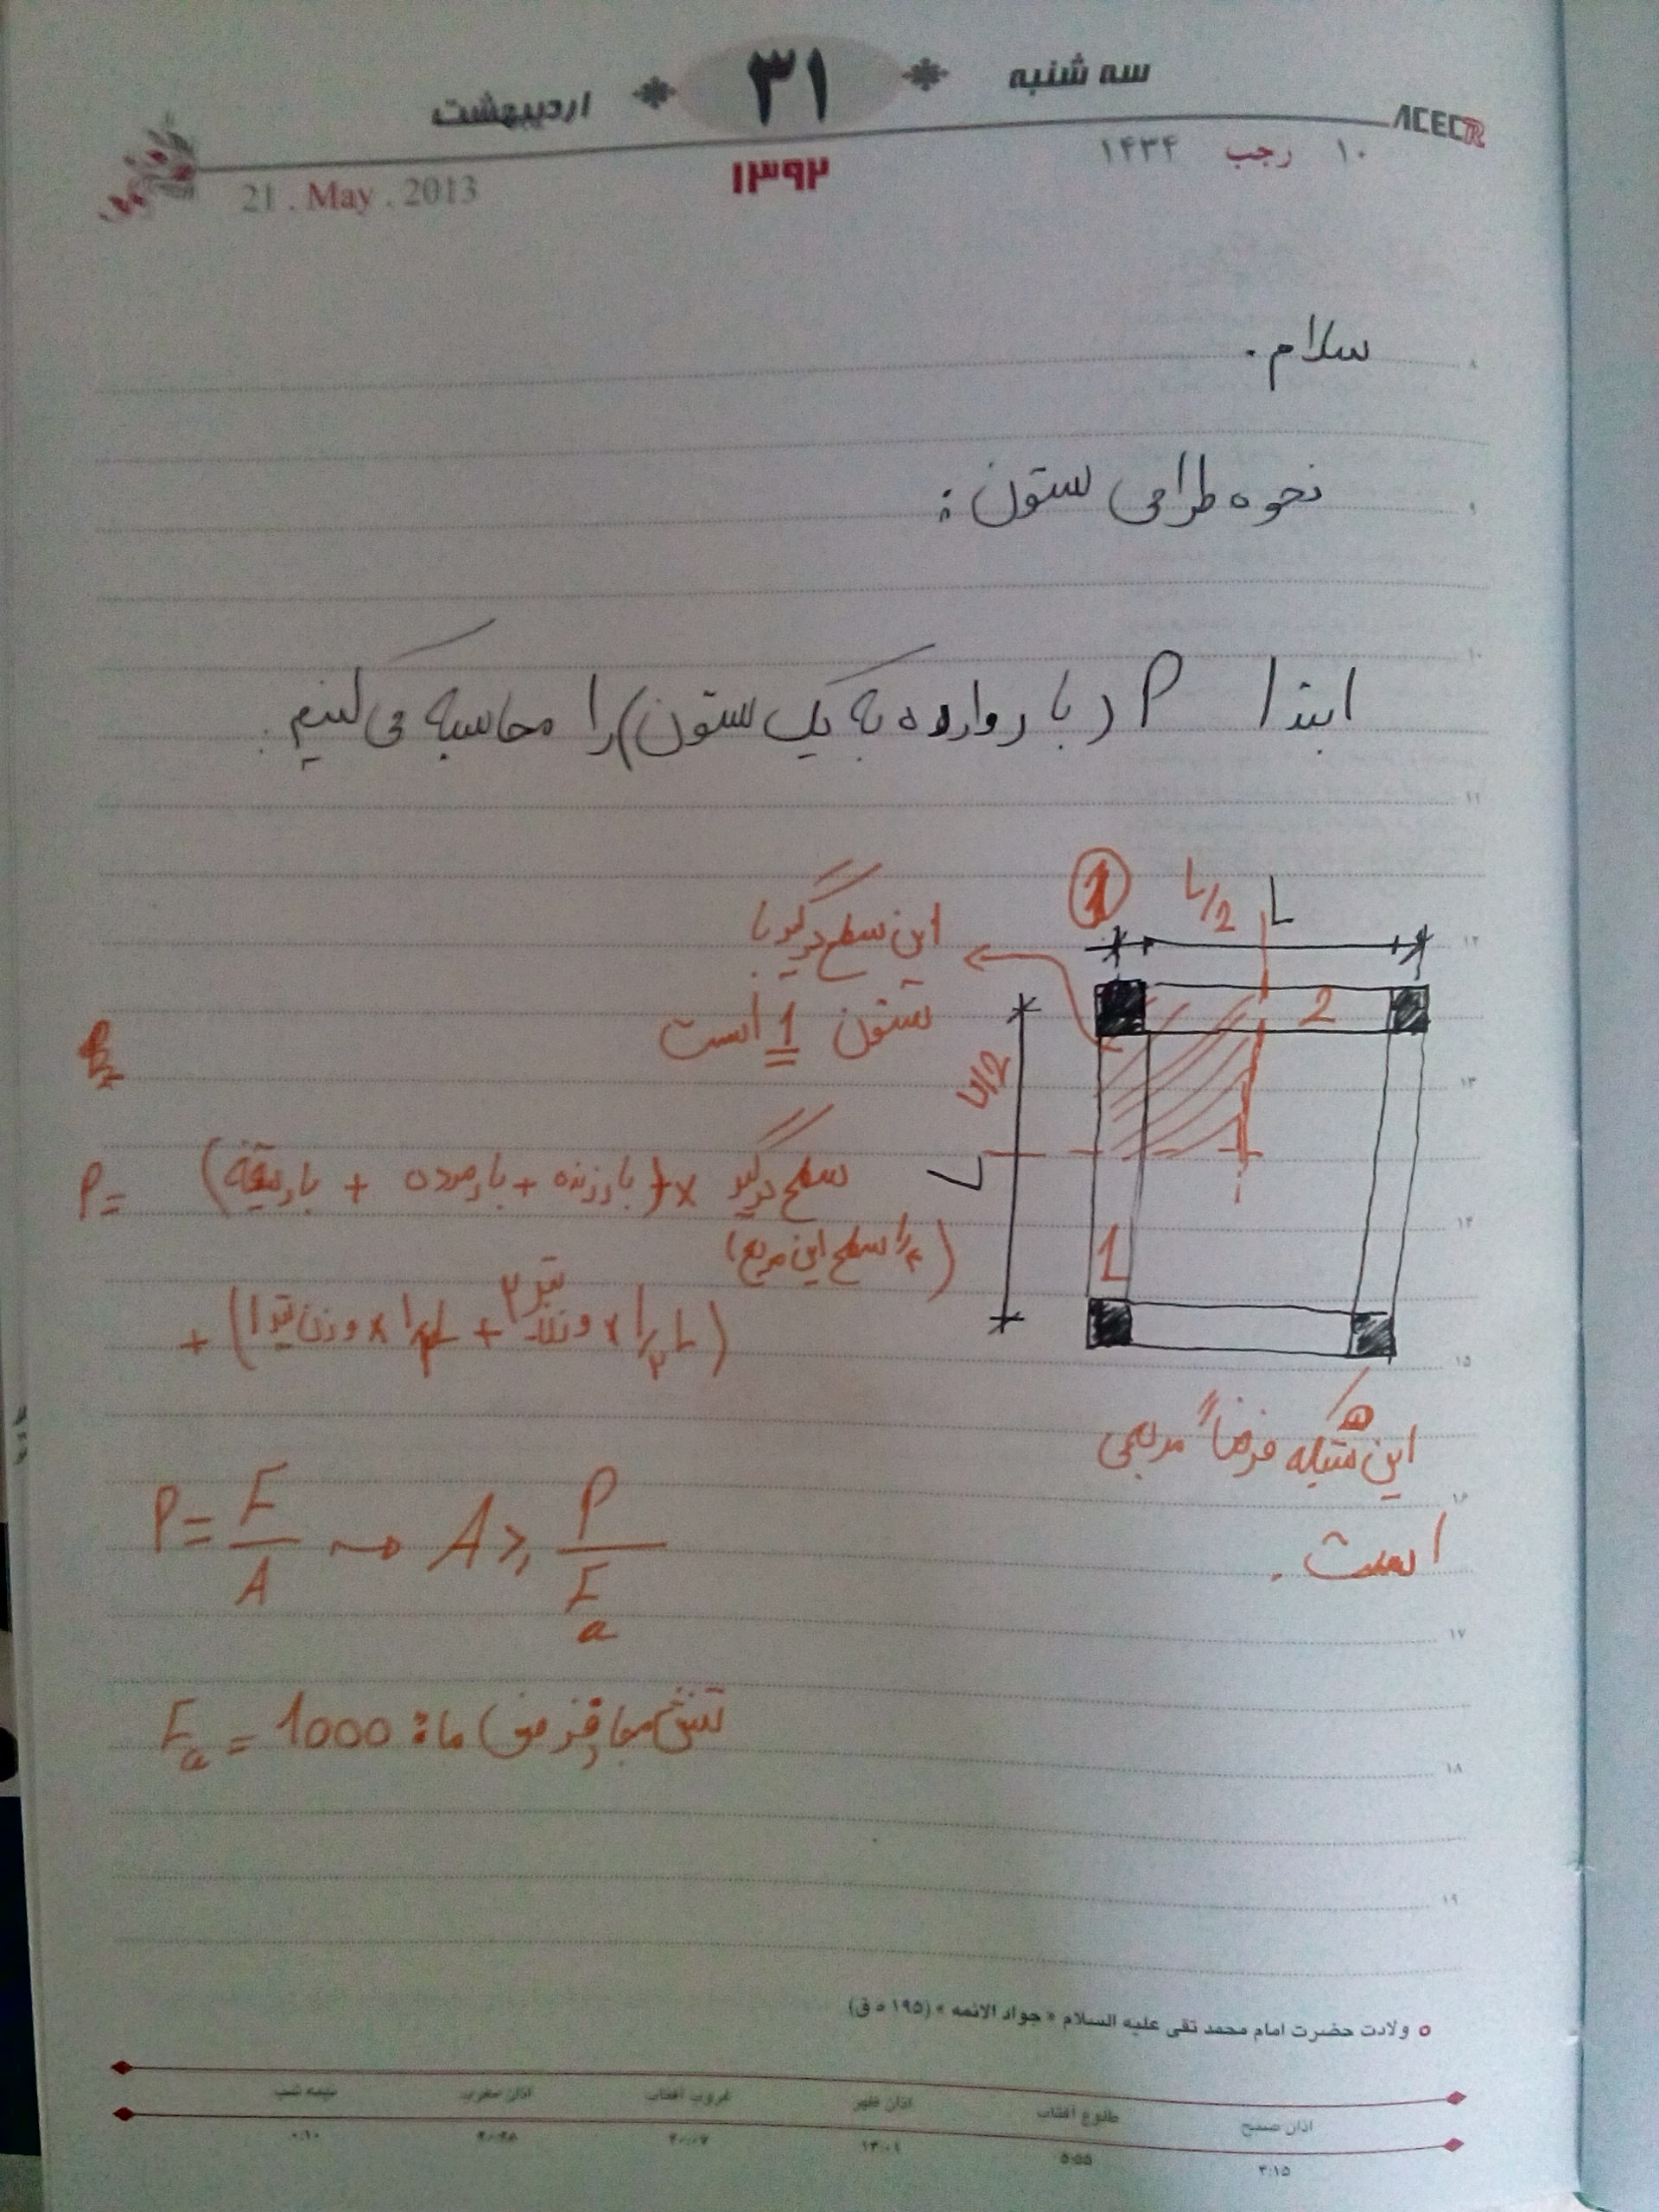 سه شنبه ۳۱ اردیبهشت
ACECR
۱۰ رجب ۱۴۳۴
۱۳۹۲
21 . May . 2013
سلام.
نحوه طراحی ستون:
ابتدا P (بار وارده به یک ستون) را محاسبه می کنیم.
1 L/2 L
این سطح بارگیر
ستون 1 است
2
L/2
L
1
P = سطح بارگیر × (بار زنده + بار مرده + بار تیغه)
(¼ سطح این مربع)
+ (½ L × وزن تیر ۲ + ½ L × وزن تیر ۱)
این شبکه فرضاً مربعی
است.
P = F/A → A ≥ P/Fa
Fa = 1000 : تنش مجاز فرضی ما
۸
۹
۱۰
۱۱
۱۲
۱۳
۱۴
۱۵
۱۶
۱۷
۱۸
۱۹
ولادت حضرت امام محمد تقی علیه السلام « جواد الائمه » (۱۹۵ ه ق)
اذان صبح طلوع آفتاب اذان ظهر غروب آفتاب اذان مغرب نیمه شب
۴:۱۵ ۵:۵۵ ۱۳:۰۱ ۲۰:۰۷ ۲۰:۲۸ ۰:۱۰